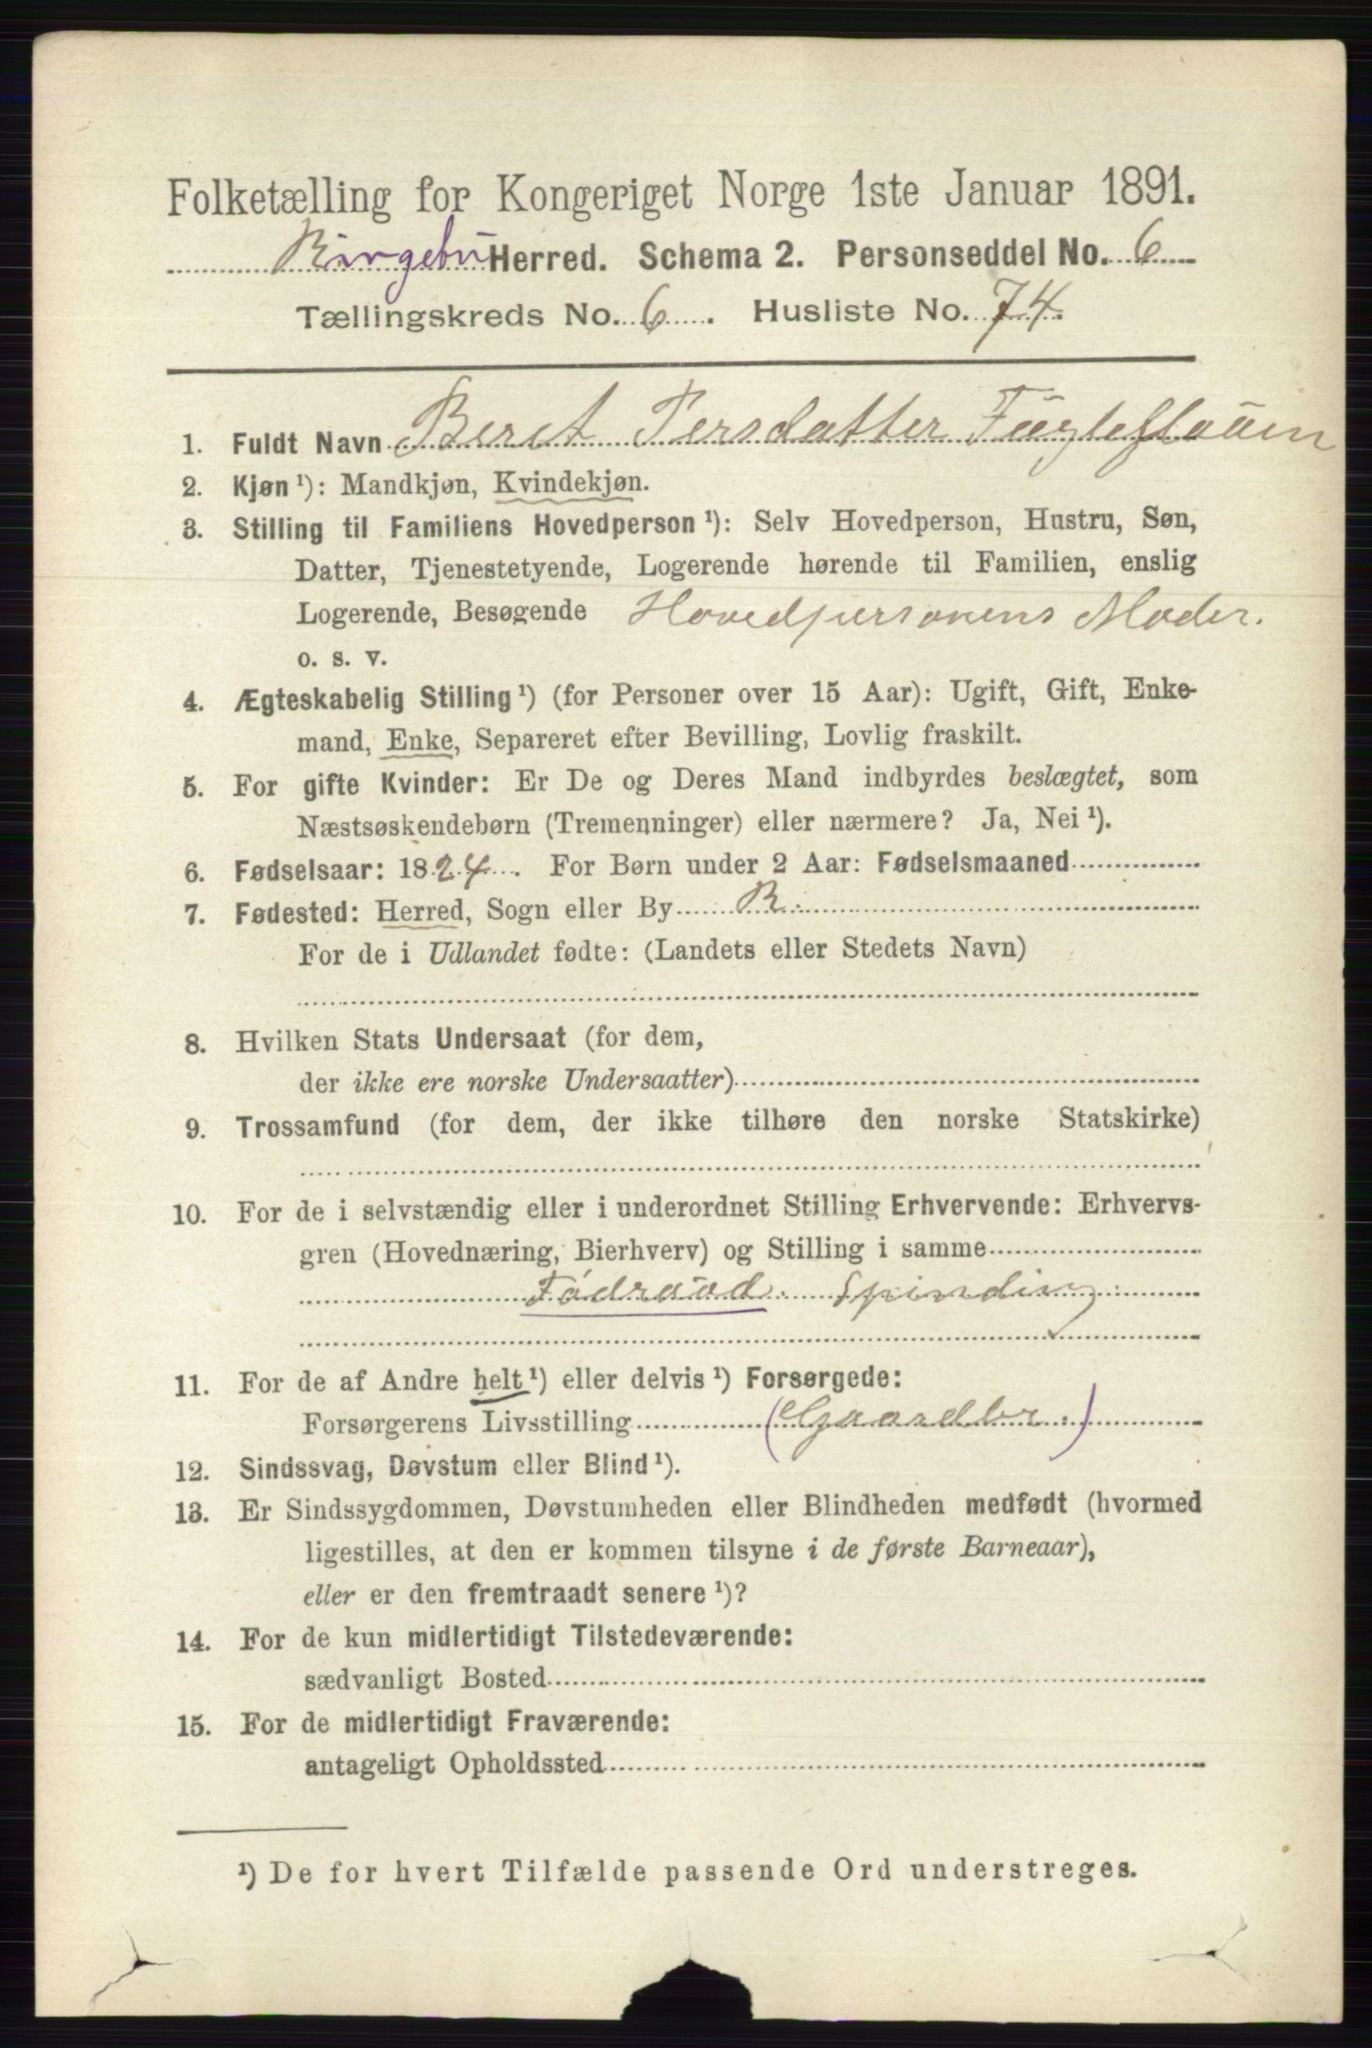 Folketælling for Kongeriget Norge 1ste Januar 1891.
Ringebu Herred. Schema 2. Personseddel No. 6
Tællingskreds No. 6. Husliste No. 74.
1. Fuldt Navn Beret Persdatter Fugleflauen
2. Kjøn¹): Mandkjøn, Kvindekjøn.
3. Stilling til Familiens Hovedperson¹): Selv Hovedperson, Hustru, Søn,
Datter, Tjenestetyende, Logerende hørende til Familien, enslig
Logerende, Besøgende Hovedpersonens Moder.
o. s. v.
4. Ægteskabelig Stilling¹) (for Personer over 15 Aar): Ugift, Gift, Enke-
mand, Enke, Separeret efter Bevilling, Lovlig fraskilt.
5. For gifte Kvinder: Er De og Deres Mand indbyrdes beslægtet, som
Næstsøskendebørn (Tremenninger) eller nærmere? Ja, Nei¹).
6. Fødselsaar: 1824. For Børn under 2 Aar: Fødselsmaaned
7. Fødested: Herred, Sogn eller By R.
For de i Udlandet fødte: (Landets eller Stedets Navn)
8. Hvilken Stats Undersaat (for dem,
der ikke ere norske Undersaatter)
9. Trossamfund (for dem, der ikke tilhøre den norske Statskirke)
10. For de i selvstændig eller i underordnet Stilling Erhvervende: Erhvervs-
gren (Hovednæring, Bierhverv) og Stilling i samme
Födraad. Spinding.
11. For de af Andre helt¹) eller delvis¹) Forsørgede:
Forsørgerens Livsstilling (Gaardbr.)
12. Sindssvag, Døvstum eller Blind¹).
13. Er Sindssygdommen, Døvstumheden eller Blindheden medfødt (hvormed
ligestilles, at den er kommen tilsyne i de første Barneaar),
eller er den fremtraadt senere¹)?
14. For de kun midlertidigt Tilstedeværende:
sædvanligt Bosted
15. For de midlertidigt Fraværende:
antageligt Opholdssted
¹) De for hvert Tilfælde passende Ord understreges.